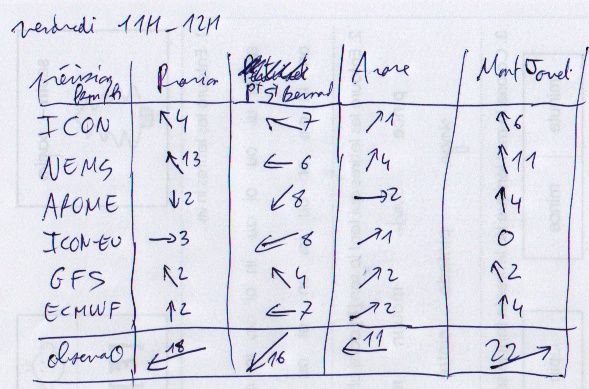 vendredi 11H - 12H
prévision km/h Rosion Pt St Bernard Arare Mont Jovet
ICON ↖4 ↖7 ↗1 ↖6
NEMS ↖13 ← 6 ↗4 ↑11
AROME ↓2 ↙8 →2 ↑4
ICON-EU →3 ↙8 ↗1 0
GFS ↖2 ↖4 ↗2 ↖2
ECMWF ↑2 ←7 ↗2 ↑4
observaO ↙18 ↙16 ←11 22↗